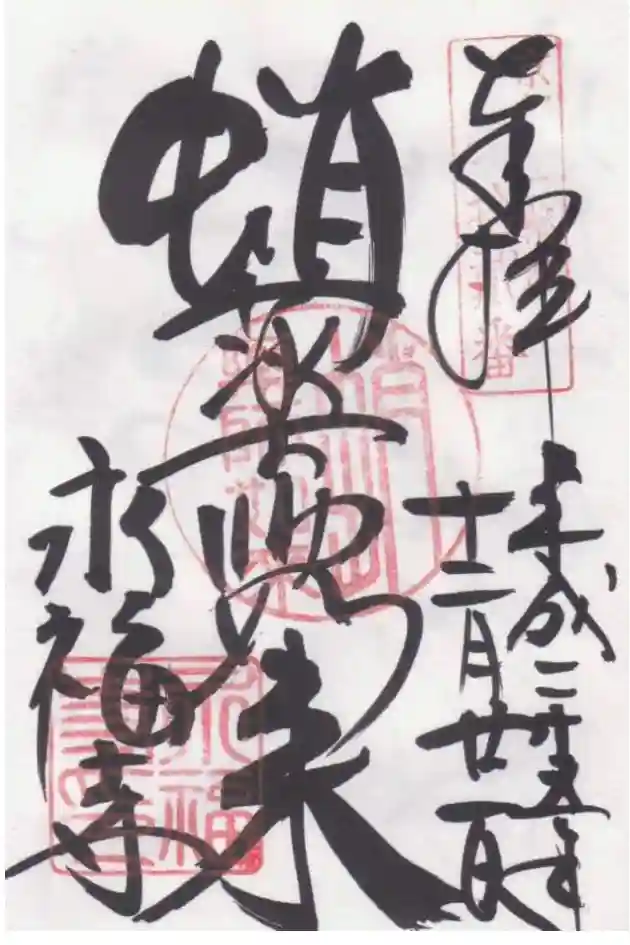 奉拝
平成二十五年
十二月廿一日
蛸薬師如来
永福寺